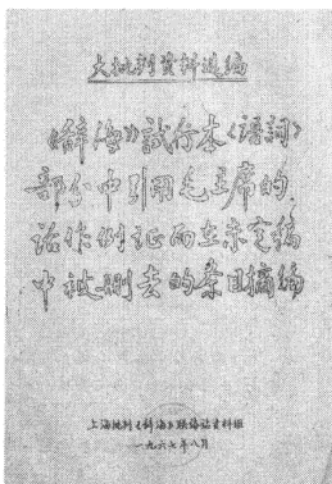 大批判資料选编
《辞海》試行本〈語詞〉
部分中引用毛主席的
話作例证而在未定稿
中被删去的条目摘编
上海批判《辞海》联络站資料组
一九六七年八月